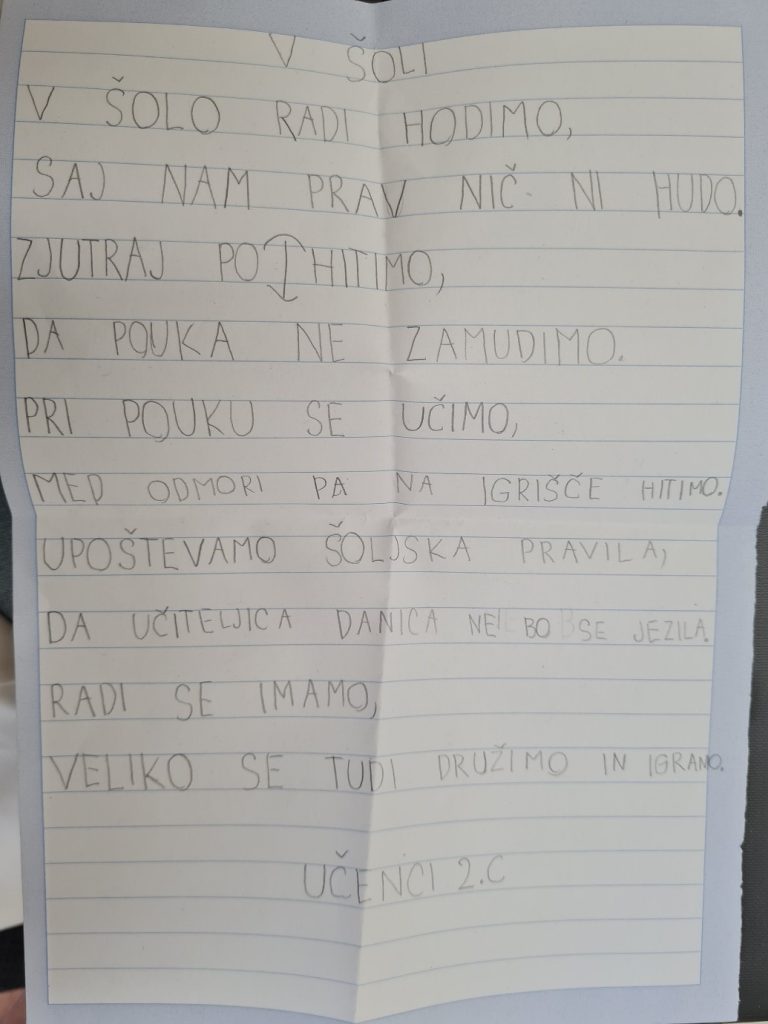 V ŠOLI
V ŠOLO RADI HODIMO,
SAJ NAM PRAV NIČ NI HUDO.
ZJUTRAJ POHITIMO,
DA POUKA NE ZAMUDIMO.
PRI POUKU SE UČIMO,
MED ODMORI PA NA IGRIŠČE HITIMO.
UPOŠTEVAMO ŠOLJSKA PRAVILA,
DA UČITELJICA DANICA NE BO SE JEZILA.
RADI SE IMAMO,
VELIKO SE TUDI DRUŽIMO IN IGRAMO.
UČENCI 2.C